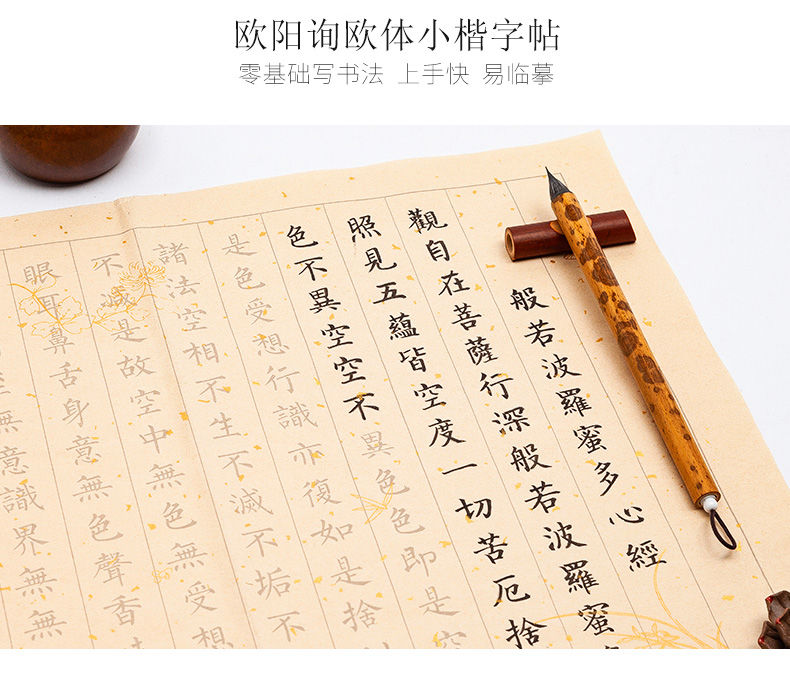 欧阳询欧体小楷字帖
零基础写书法 上手快 易临摹
般若波羅蜜多心經
觀自在菩薩行深般若波羅蜜
照見五蘊皆空度一切苦厄捨
色不異空空不異色色即是空
是色受想行識亦復如是捨
諸法空相不生不滅不垢不
不減是故空中無色無受想
眼耳鼻舌身意無色聲香
無意識界無無